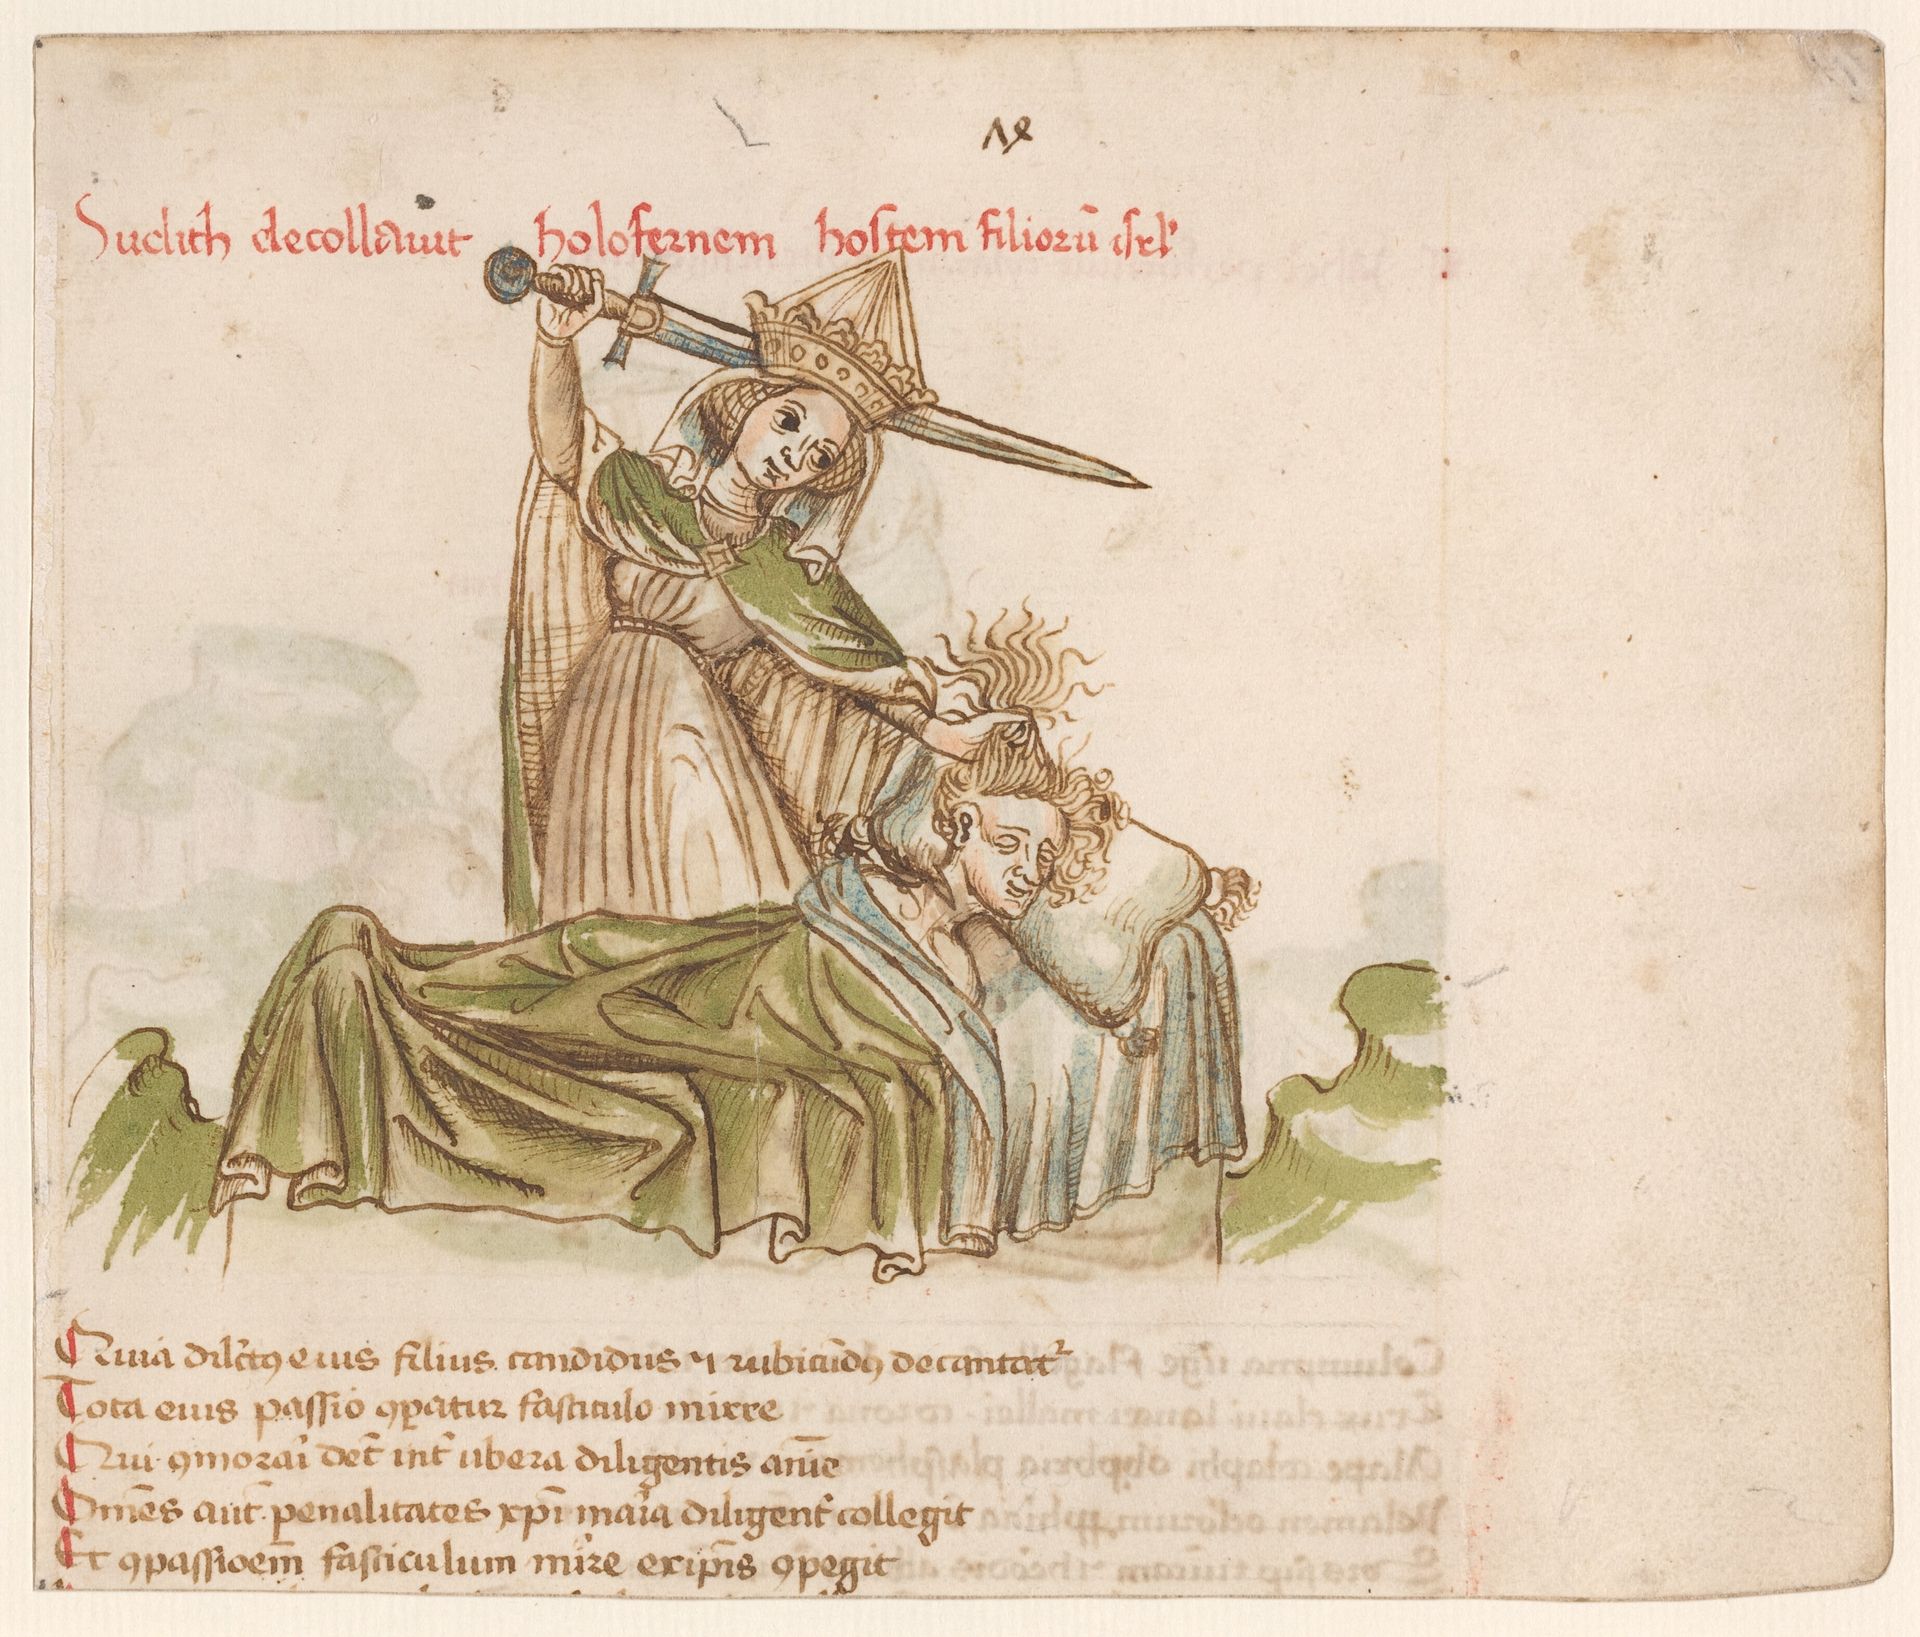 Judith decollavit holofernem hostem filiorū isrl'
Quia dilctꝯ eius filius candidus ⁊ rubicūdꝯ decantatᷣ
Tota eius passio ꝯparatur fasciculo mirre
Qui ꝯmorari det̄ int̄ ubera diligentis anīe
Omēs aut̄ penalitates xp̄i maria diligent̄ collegit
Et ꝯpassioem fasciculum mirre ex ip̄is ꝯpegit